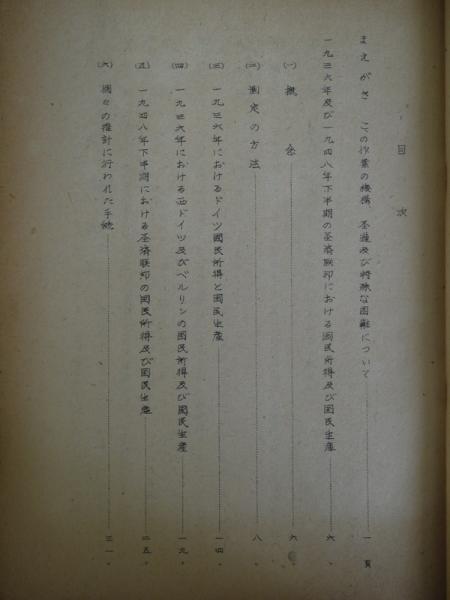 目次
まえがき この作業の機構、基礎及び特殊な困難について 一頁
一九三六年及び一九四八年下半期の経済联印における國民所得及び國民生産 六〃
(一) 概念 六〃
(二) 測定の方法 八〃
(三) 一九三六年におけるドイツ國民所得と國民生産 一四〃
(四) 一九三六年における西ドイツ及びベルリンの國民所得及び國民生産 一九〃
(五) 一九四八年下半期における经済联印の國民所得及び國民生産 二五〃
(六) 個々の推計に行われた手続 三一〃